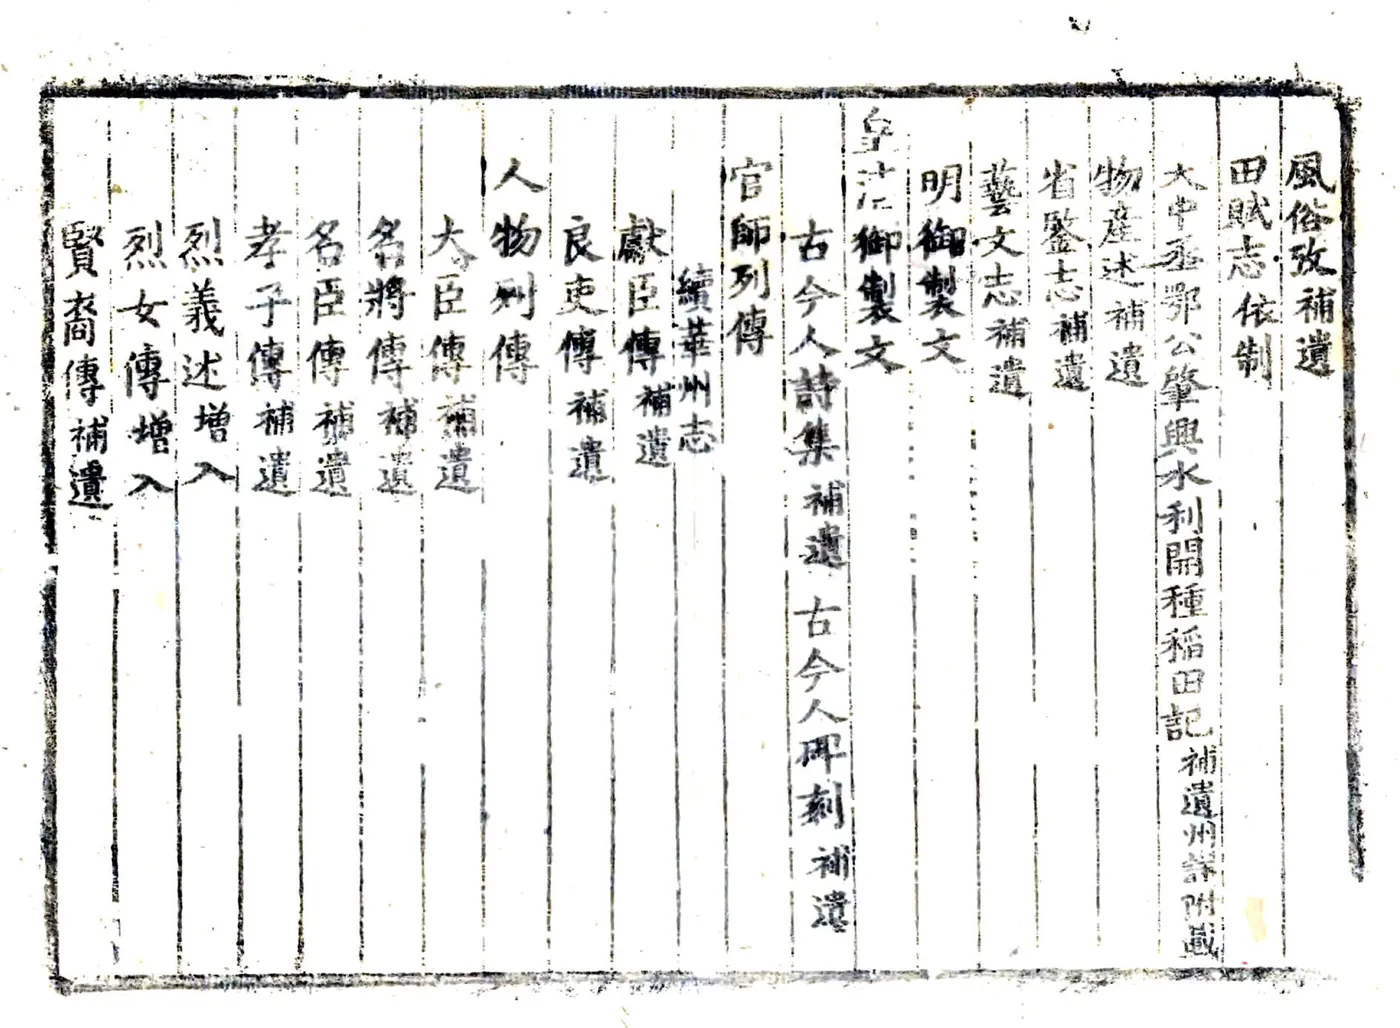 風俗攷補遺
田賦志依制
大中丞鄂公肇興水利開種稻田記補遺州詳附載
物産述補遺
省鑒志補遺
藝文志補遺
明御製文
皇清御製文
古今人詩集補遺 古今人碑刻補遺
官師列傳
續華州志
獻臣傳補遺
良吏傳補遺
人物列傳
大臣傳補遺
名將傳補遺
名臣傳補遺
孝子傳補遺
烈義述增入
烈女傳增入
賢裔傳補遺